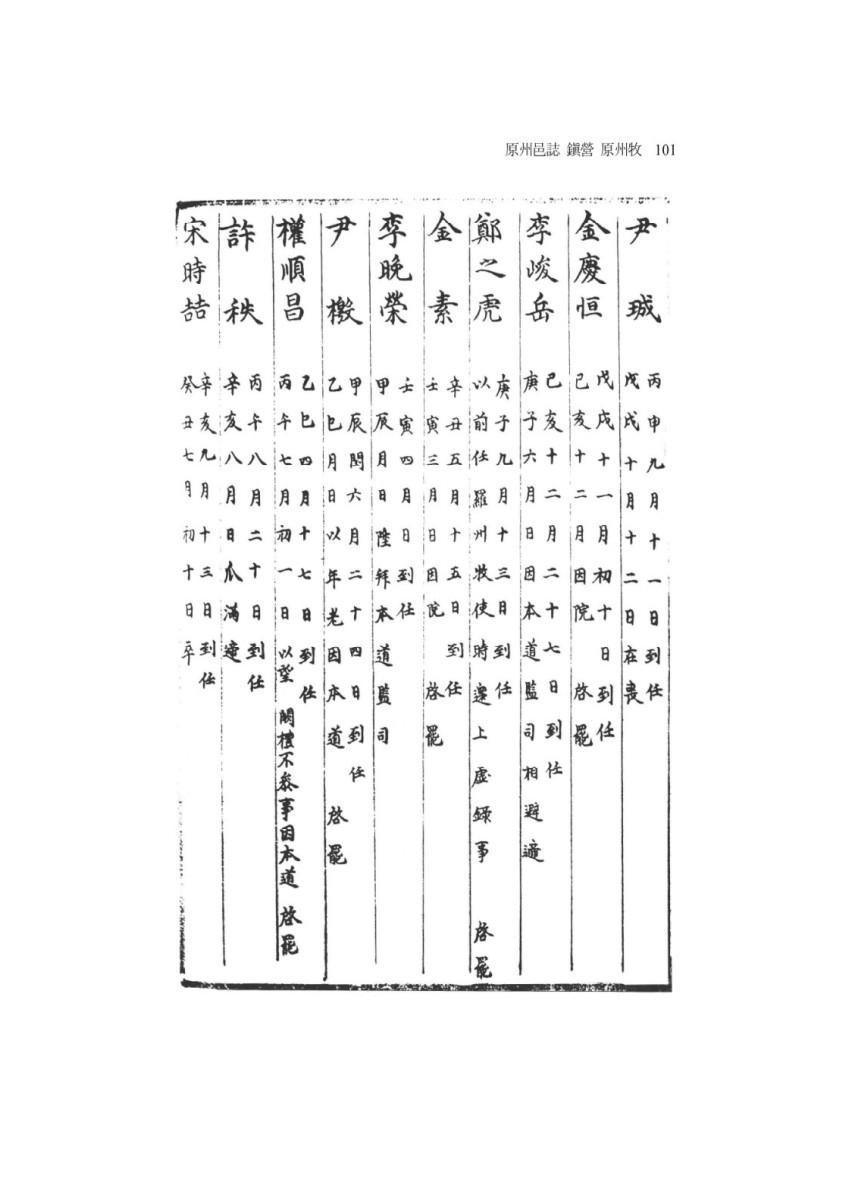 原州邑誌 鎭營 原州牧 101
尹 珹
丙申九月十一日到任
戊戌十月十二日在喪
金慶恒
戊戌十一月初十日到任
己亥十二月因院 啓罷
李峻岳
己亥十二月二十七日到任
庚子六月日因本道監司相避遞
鄭之虎
庚子九月十三日到任
以前任羅州牧使時還上虛錄事 啓罷
金 素
辛丑五月十五日到任
壬寅三月日因院 啓罷
李晩榮
壬寅四月日到任
甲辰月日陞拜本道監司
尹 檄
甲辰閏六月二十四日到任
乙巳月日以年老因本道 啓罷
權順昌
乙巳四月十七日到任
丙午七月初一日以望 闕禮不參事因本道 啓罷
許 秩
丙午八月二十日到任
辛亥八月日瓜滿遞
宋時喆
辛亥九月十三日到任
癸丑七月初十日卒